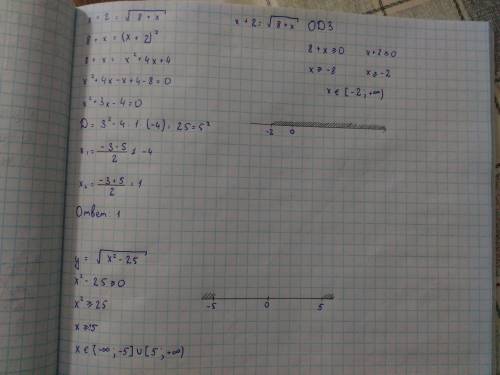 x + 2 = √8 + x
8 + x = (x + 2)²
8 + x = x² + 4x + 4
x² + 4x - x + 4 - 8 = 0
x² + 3x - 4 = 0
D = 3² - 4 · 1 (-4) = 25 = 5²
x₁ = (-3 - 5)/2 = -4
x₂ = (-3 + 5)/2 = 1
Ответ 1
x + 2 = √8 + x ОДЗ
8 + x ≥ 0 x + 2 ≥ 0
x ≥ -8 x ≥ -2
x ∈ [-2; +∞)
-2 0
y = √x² - 25
x² - 25 ≥ 0
x² ≥ 25
x ≥ ±5
x ∈ (-∞; -5] ∪ [5; +∞)
-5 0 5